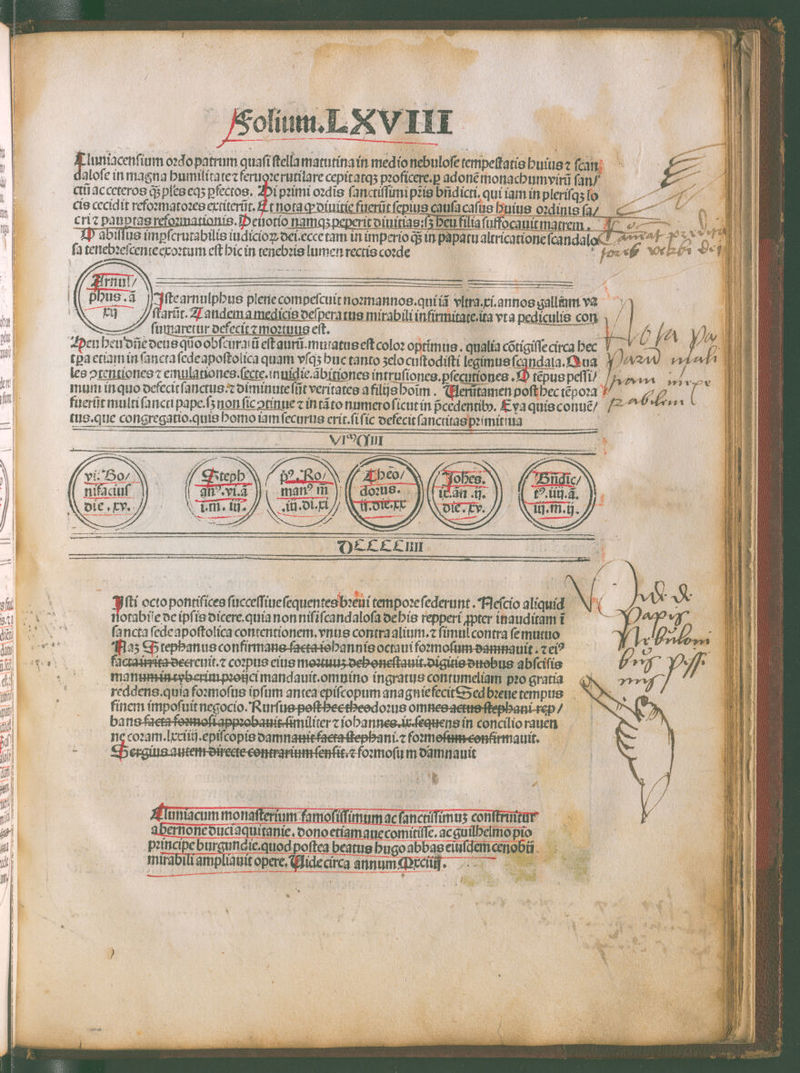 Folium.LXVIII
Cluniacensium ordo patrum quasi stella matutina in medio nebulose tempestatis huius ⁊ scan
dalose in magna humilitate ⁊ feruore rutilare cepit atqꝫ proficere. ꝑ adonē monachum virū san/
ctū ac ceteros qꝫ ples eqꝫ ꝑfectos. Hi primi ordīs sanctissimi pr̄is bn̄dicti. qui iam in plerisqꝫ lo
cis cecidit reformatores extiterūt. Et nota ꝙ diuitie fuerūt sepius causa casus huius ordinis sa/
cri ⁊ pauꝑtas reformationis. Deuotio namqꝫ peperit diuitias: sꝫ heu filia suffocauit matrem.
O abissus imꝑscrutabilis iudicioꝝ dei. ecce tam in imperio qꝫ in papatu altricatione scandalo
sa tenebrescente exortum est hic in tenebris lumen rectis corde
Arnul/
phus. ā
xij
Iste arnulphus plene compescuit normannos. qui iā vltra. xl. annos galliam va
starūt. Tandem a medicis desperatus mirabili infirmitate. ita vt a pediculis con
sumaretur defecit ⁊ mortuus est.
Heu heu dn̄e deus quō obscuratū est aurū. mutatus est color optimus. qualia cōtigisse circa hec
tꝑa etiam in sancta sede apostolica quam vsqꝫ huc tanto zelo custodisti legimus scandala. Qua
les ꝯtentiones ⁊ emulationes. secte. inuidie. ābitiones intrusiones. ꝑsecutiones. O tēpus pessi/
mum in quo defecit sanctus. ⁊ diminute sūt veritates a filijs hoīm. Verūtamen post hec tēpora
fuerūt multi sancti pape. sꝫ non sic ꝯtinue ⁊ in tāto numero sicut in p̄cedentibꝰ. Eya quis conuē/
tus. que congregatio. quis homo iam securus erit. si sic defecit sanctitas primitiua
vi. Bo/
nifacius
die. xv.
Steph
anꝰ. vi. ā
i. m. iij.
pꝰ. Ro/
manꝰ m
.iij. di. xi
Theo/
dorus.
ij. die. xx
Johēs.
ix. an .ij.
die. xv.
Bn̄dic/
tꝰ. iiij. ā.
iij. m. ij.
Isti octo pontifices successiue sequentes breui tempore sederunt. Nescio aliquid
notabile de ipsis dicere. quia non nisi scandalosa de his repperi ꝓpter inauditam ī
sancta sede apostolica contentionem. vnus contra alium. ⁊ simul contra se mutuo
Naꝫ Stephanus confirmans facta iohannis octaui formosum damnauit. ⁊ eiꝰ
facta irrita decreuit. ⁊ corpus eius mortuuꝫ dehonestauit. digitis duobus abscisis
manum in tyberim proijci mandauit. omnino ingratus contumeliam pro gratia
reddens. quia formosus ipsum antea episcopum anagnie fecit Sed breue tempus
finem imposuit negocio. Rursus post hec theodorus omnes actus stephani rep/
bans facta formosi approbauit. similiter ⁊ iohannes. ix. sequens in concilio rauen
ne coram. lxxiiij. episcopis damnauit facta stephani. ⁊ formosum confirmauit.
Sergius autem directe contrarium sensit. ⁊ formosum damnauit
Vide de
Papis
Nebuloni
bus Pessi
mis
Cluniacum monasterium famosissimum ac sanctissimuꝫ construitur
a bernone duci aquitanie. dono etiam aue comitisse. ac guilhelmo pio
principe burgundie. quod postea beatus hugo abbas eiusdem cenobij
mirabili ampliauit opere. Vide circa annum Mxciiij.